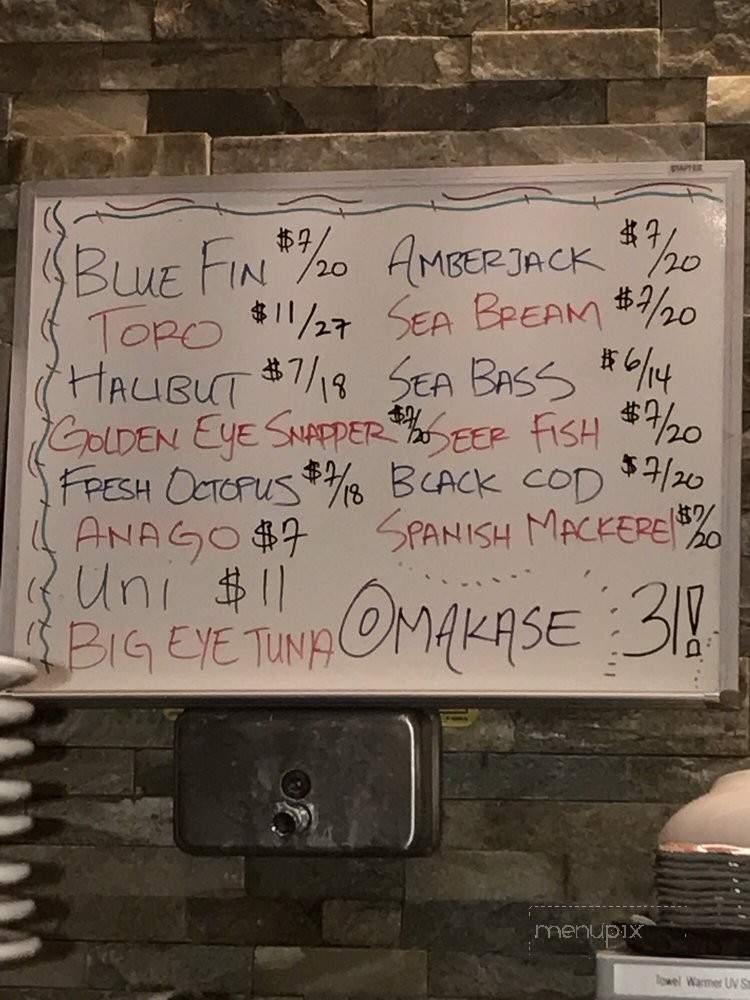 STAPLES
BLUE FIN $7/20 AMBERJACK $7/20
TORO $11/27 SEA BREAM $7/20
HALIBUT $7/18 SEA BASS $6/14
GOLDEN EYE SNAPPER $7/20 SEER FISH $7/20
FRESH OCTOPUS $7/18 BLACK COD $7/20
ANAGO $7 SPANISH MACKEREl $7/20
Uni $11
BIG EYE TUNA OMAKASE 31!
menupix
Towel Warmer UV